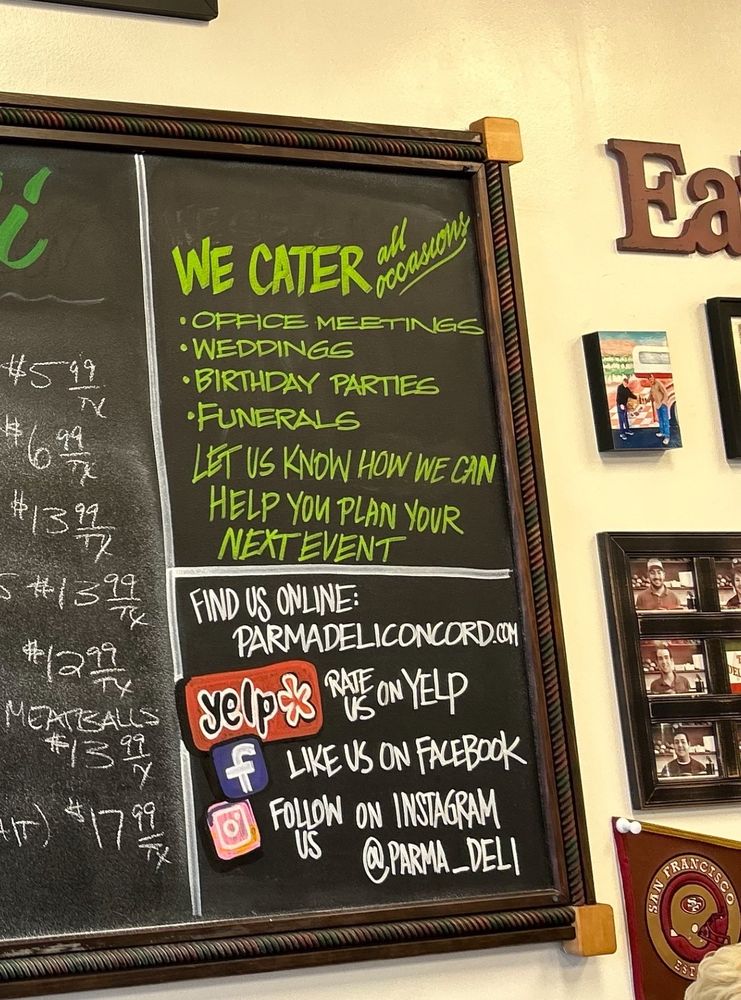 $5 99
TX
$6 99
TX
$13 99
TX
$13 99
TX
$12 99
TX
MEATBALLS
$13 99
TX
$17 99
TX
WE CATER all occasions
• OFFICE MEETINGS
• WEDDINGS
• BIRTHDAY PARTIES
• FUNERALS
LET US KNOW HOW WE CAN
HELP YOU PLAN YOUR
NEXT EVENT
FIND US ONLINE:
PARMADELICONCORD.COM
yelp RATE US ON YELP
f LIKE US ON FACEBOOK
FOLLOW US ON INSTAGRAM
@PARMA_DELI
Ea
SAN FRANCISCO
SF
EST